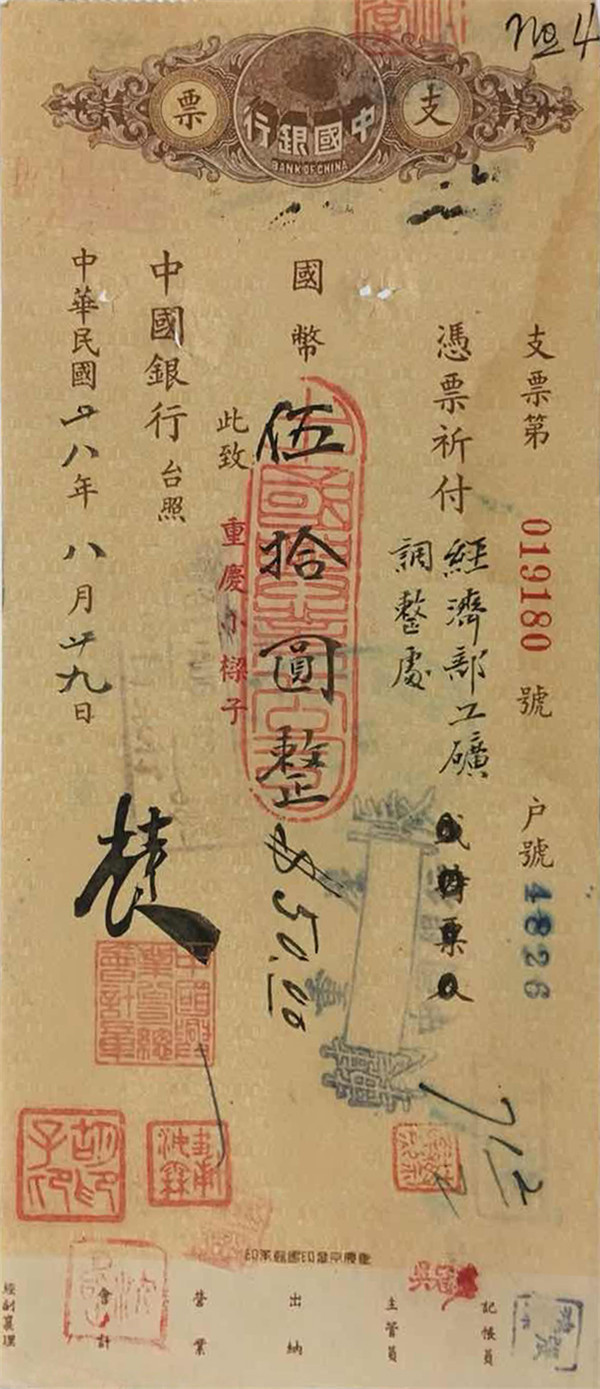 No 4
支票
中國銀行
BANK OF CHINA
支票第 019180 號 戶號 4826
憑票祈付 經濟部工礦
調整處
或持票人
國幣 伍拾圓整 $50.00
此致 重慶小樑子
中國銀行 台照
中華民國廿八年八月廿九日
記帳員
主管員
出納
營業
會計
經副襄理